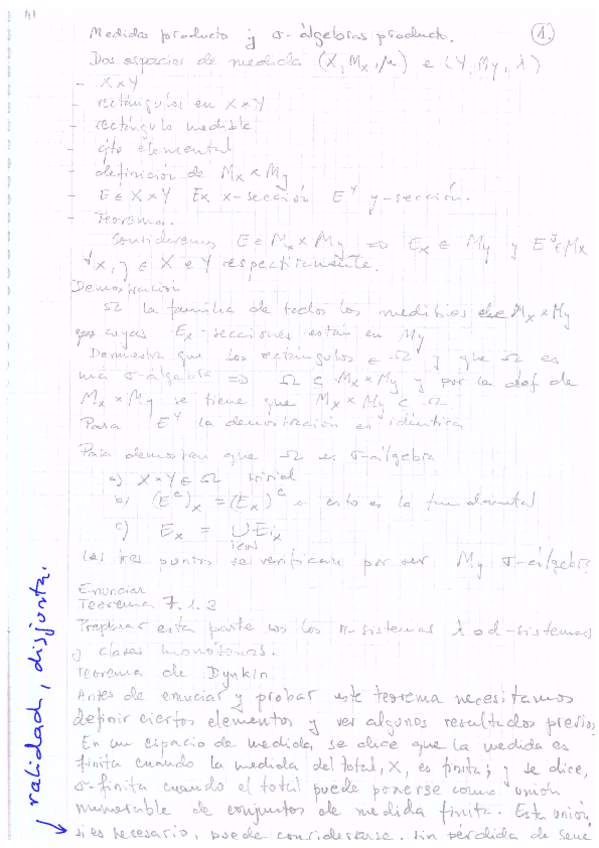 41
1.
Medidas producto y σ-álgebras producto.
Dos espacios de medida (X, Mx, μ) e (Y, My, λ)
- X×Y
- rectángulos en X×Y
- rectángulo medible
- cjto elemental
- definición de Mx × My
- E ∈ X×Y Ex x-sección E^Y y-sección.
- Teorema.
Consideremos E ∈ Mx × My => Ex ∈ My y E^y ∈ Mx
∀x, y ∈ X e Y respectivamente.
Demostración
Ω la familia de todos los medibles de Mx × My
cuyas Ex-secciones están en My
Demuestra que los rectángulos ∈ Ω y que Ω es
una σ-álgebra => Ω ⊆ Mx × My y por la def de
Mx × My se tiene que Mx × My ⊂ Ω
Para E^Y la demostración es idéntica
Para demostrar que Ω es σ-álgebra
a) X×Y ∈ Ω trivial
b) (E^c)x = (Ex)^c esto es lo fundamental
c) Ex = ∪ Eix
i∈N
Los tres puntos se verifican por ser My σ-álgebra
Enunciar
Teorema 7.1.3
Preparar esta parte con los π-sistemas λ o d-sistemas
y clases monótonas.
Teorema de Dynkin
Antes de enunciar y probar este teorema necesitamos
definir ciertos elementos y ver algunos resultados previos
En un espacio de medida, se dice que la medida es
finita cuando la medida del total, X, es finita; y se dice,
σ-finita cuando el total puede ponerse como unión
numerable de conjuntos de medida finita. Esta unión,
si es necesario, puede considerarse, sin pérdida de gene
ralidad, disjunta.